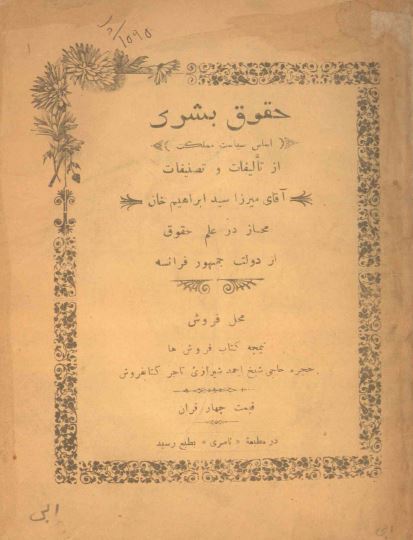 ۱۰۹۵
۱
حقوق بشری
اساس سیاست مملکت
از تألیفات و تصنیفات
آقای میرزا سید ابراهیم خان
مجاز در علم حقوق
از دولت جمهور فرانسه
محل فروش
تیمچه کتاب فروش ها
حجره حاجی شیخ احمد شیرازی تاجر کتابفروش
قیمت چهار قران
در مطبعهٔ « ناصری » بطبع رسید